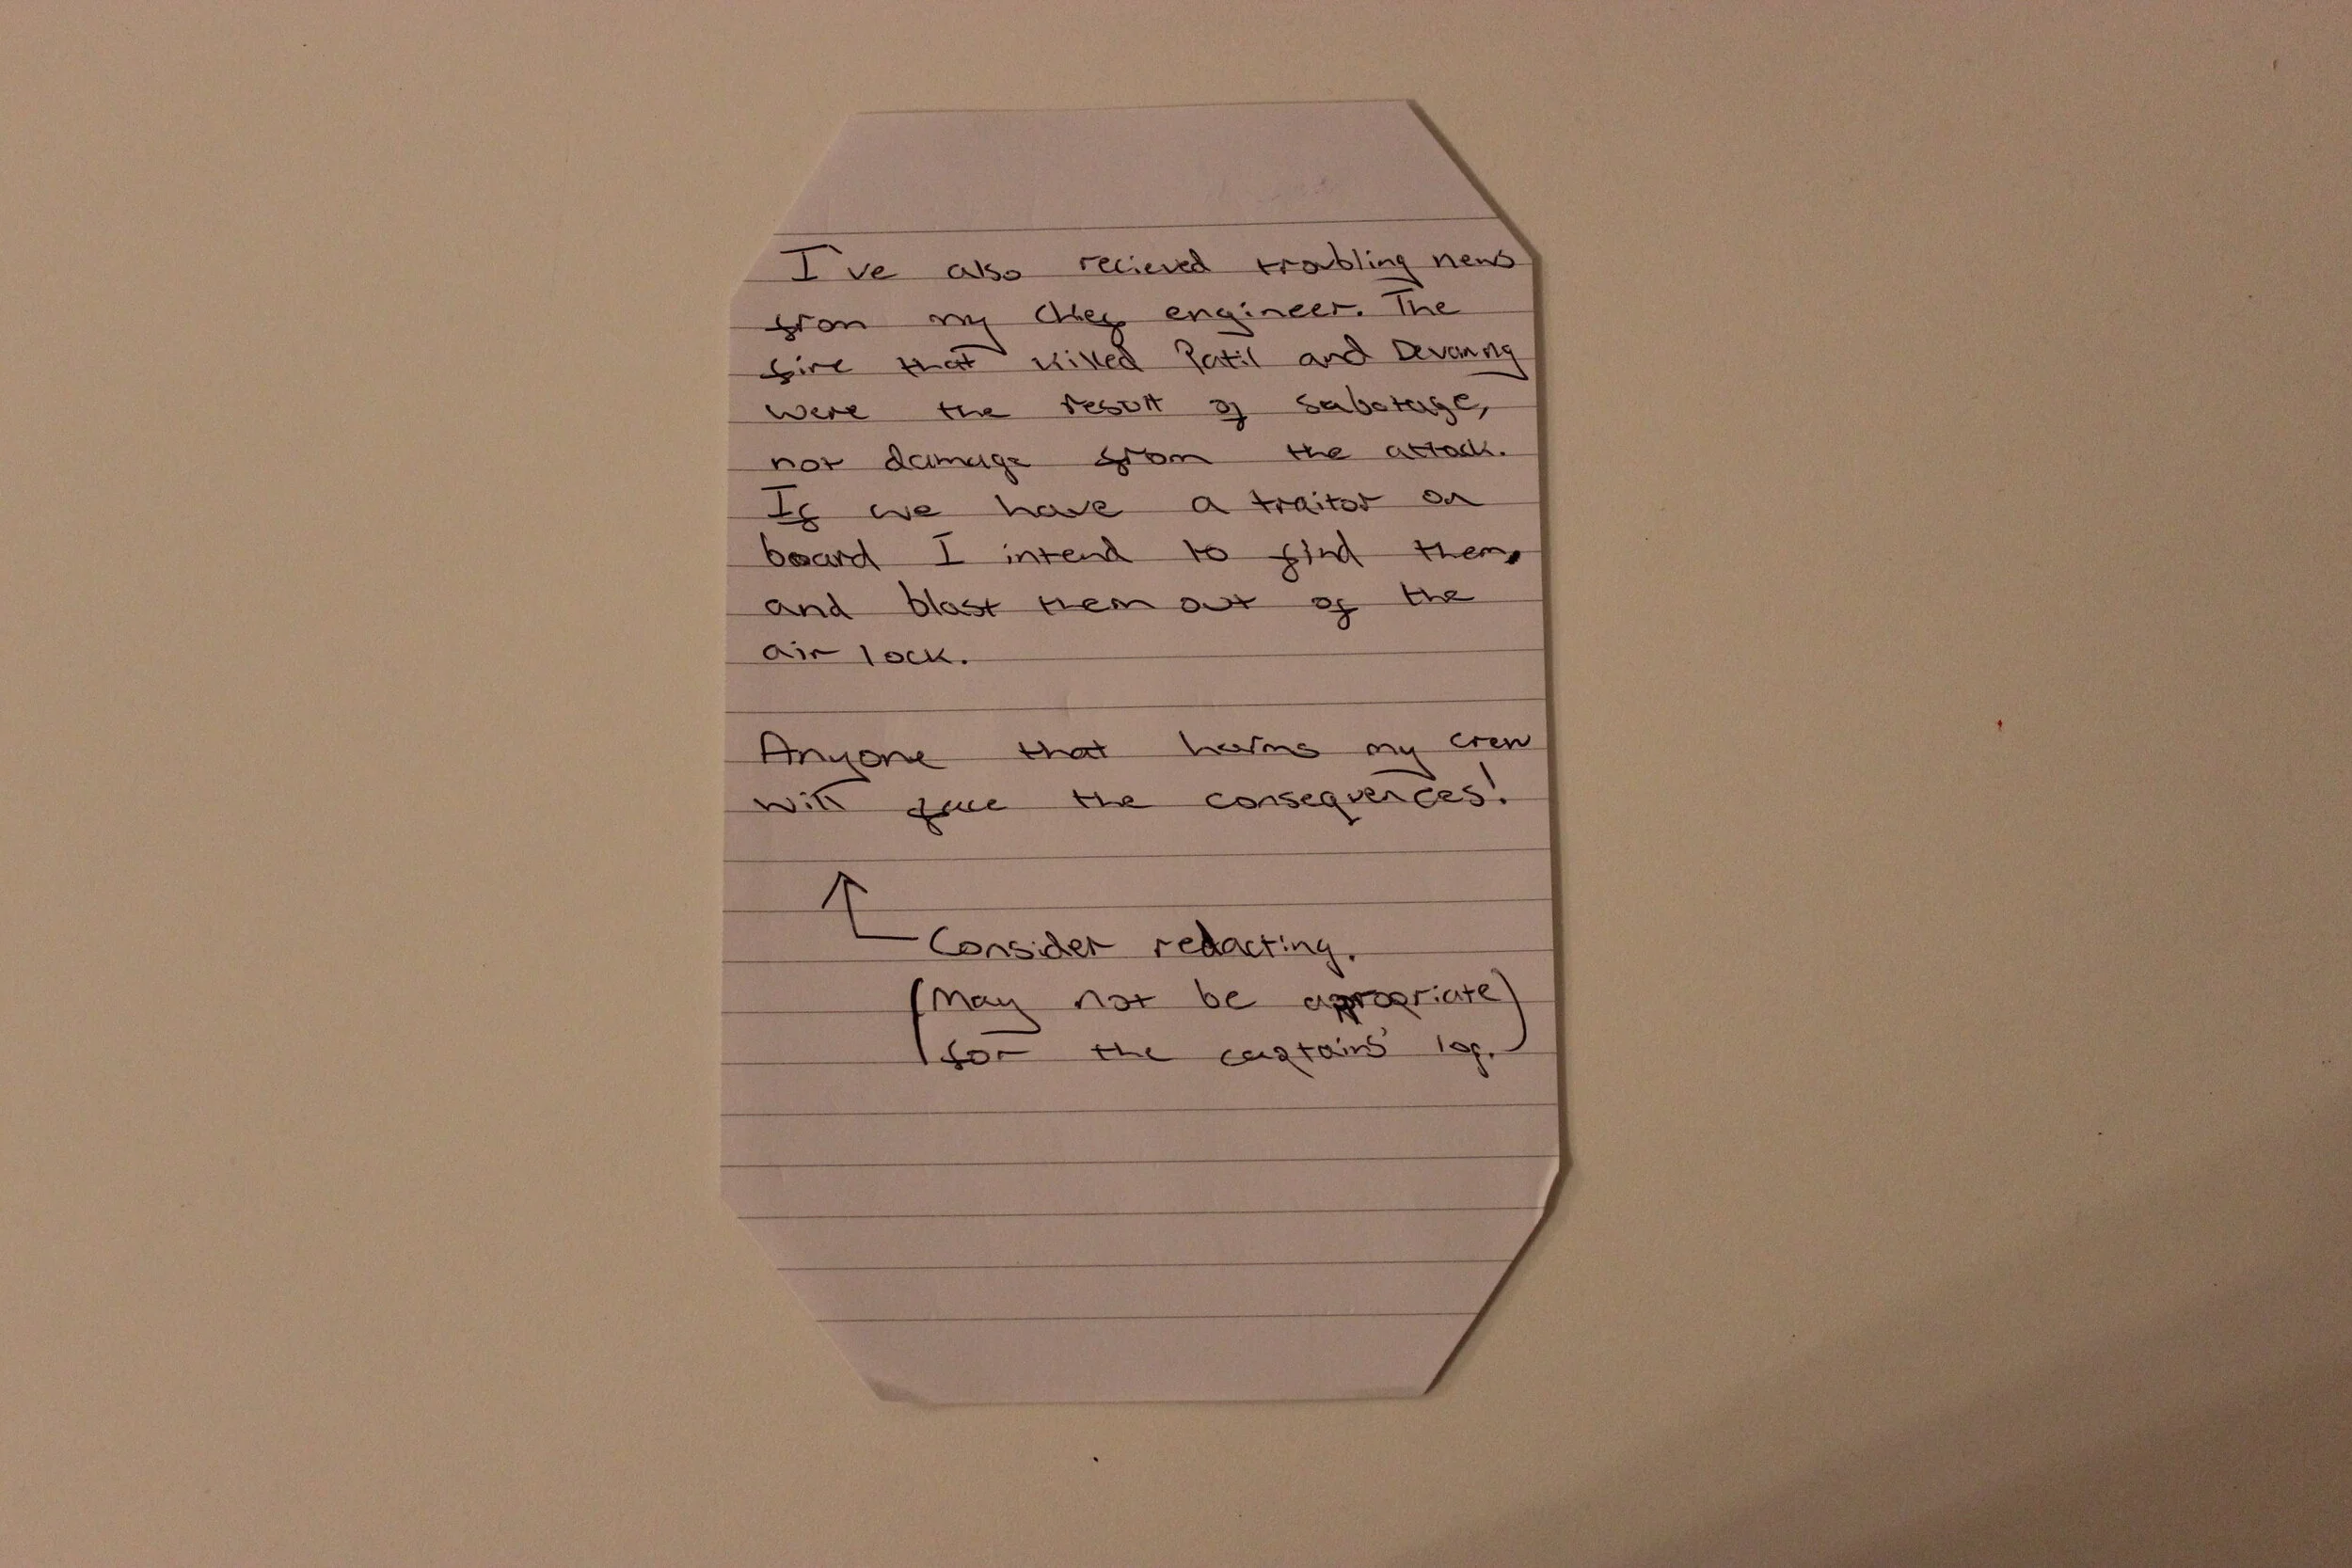 I've also recieved troubling news
from my chief engineer. The
fire that killed Patil and
were the result of sabotage,
not damage from the attack.
If we have a traitor on
board I intend to find them,
and blast them out of the
air lock.
Anyone that harms my crew
will face the consequences!
Consider redacting.
(May not be apropriate)
for the captains' log.